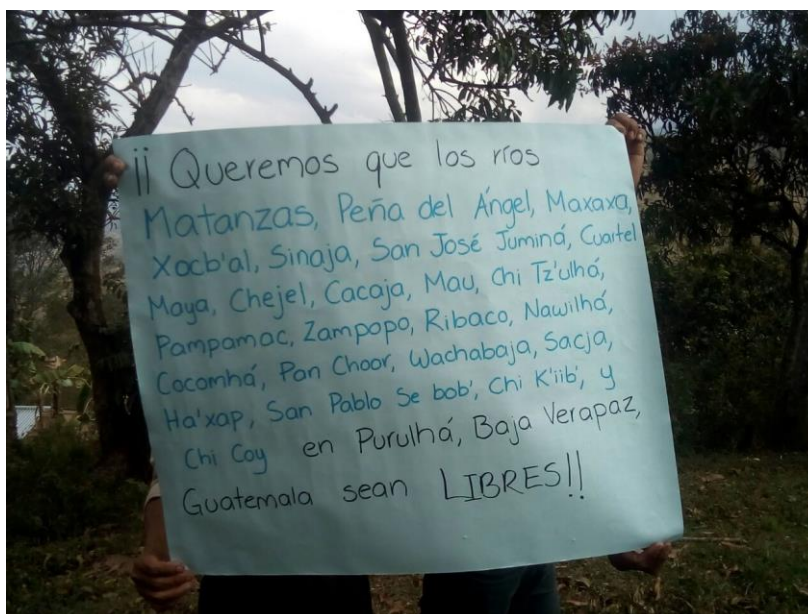 ¡¡ Queremos que los ríos
Matanzas, Peña del Ángel, Maxaxa,
Xocb'al, Sinaja, San José Juminá, Cuartel
Maya, Chejel, Cacaja, Mau, Chi Tz'ulhá,
Pampamac, Zampopo, Ribaco, Nawilhá,
Cocomhá, Pan Choor, Wachabaja, Sacja,
Ha'xap, San Pablo Se bob', Chi K'iib', y
Chi Coy en Purulhá, Baja Verapaz,
Guatemala sean LIBRES!!